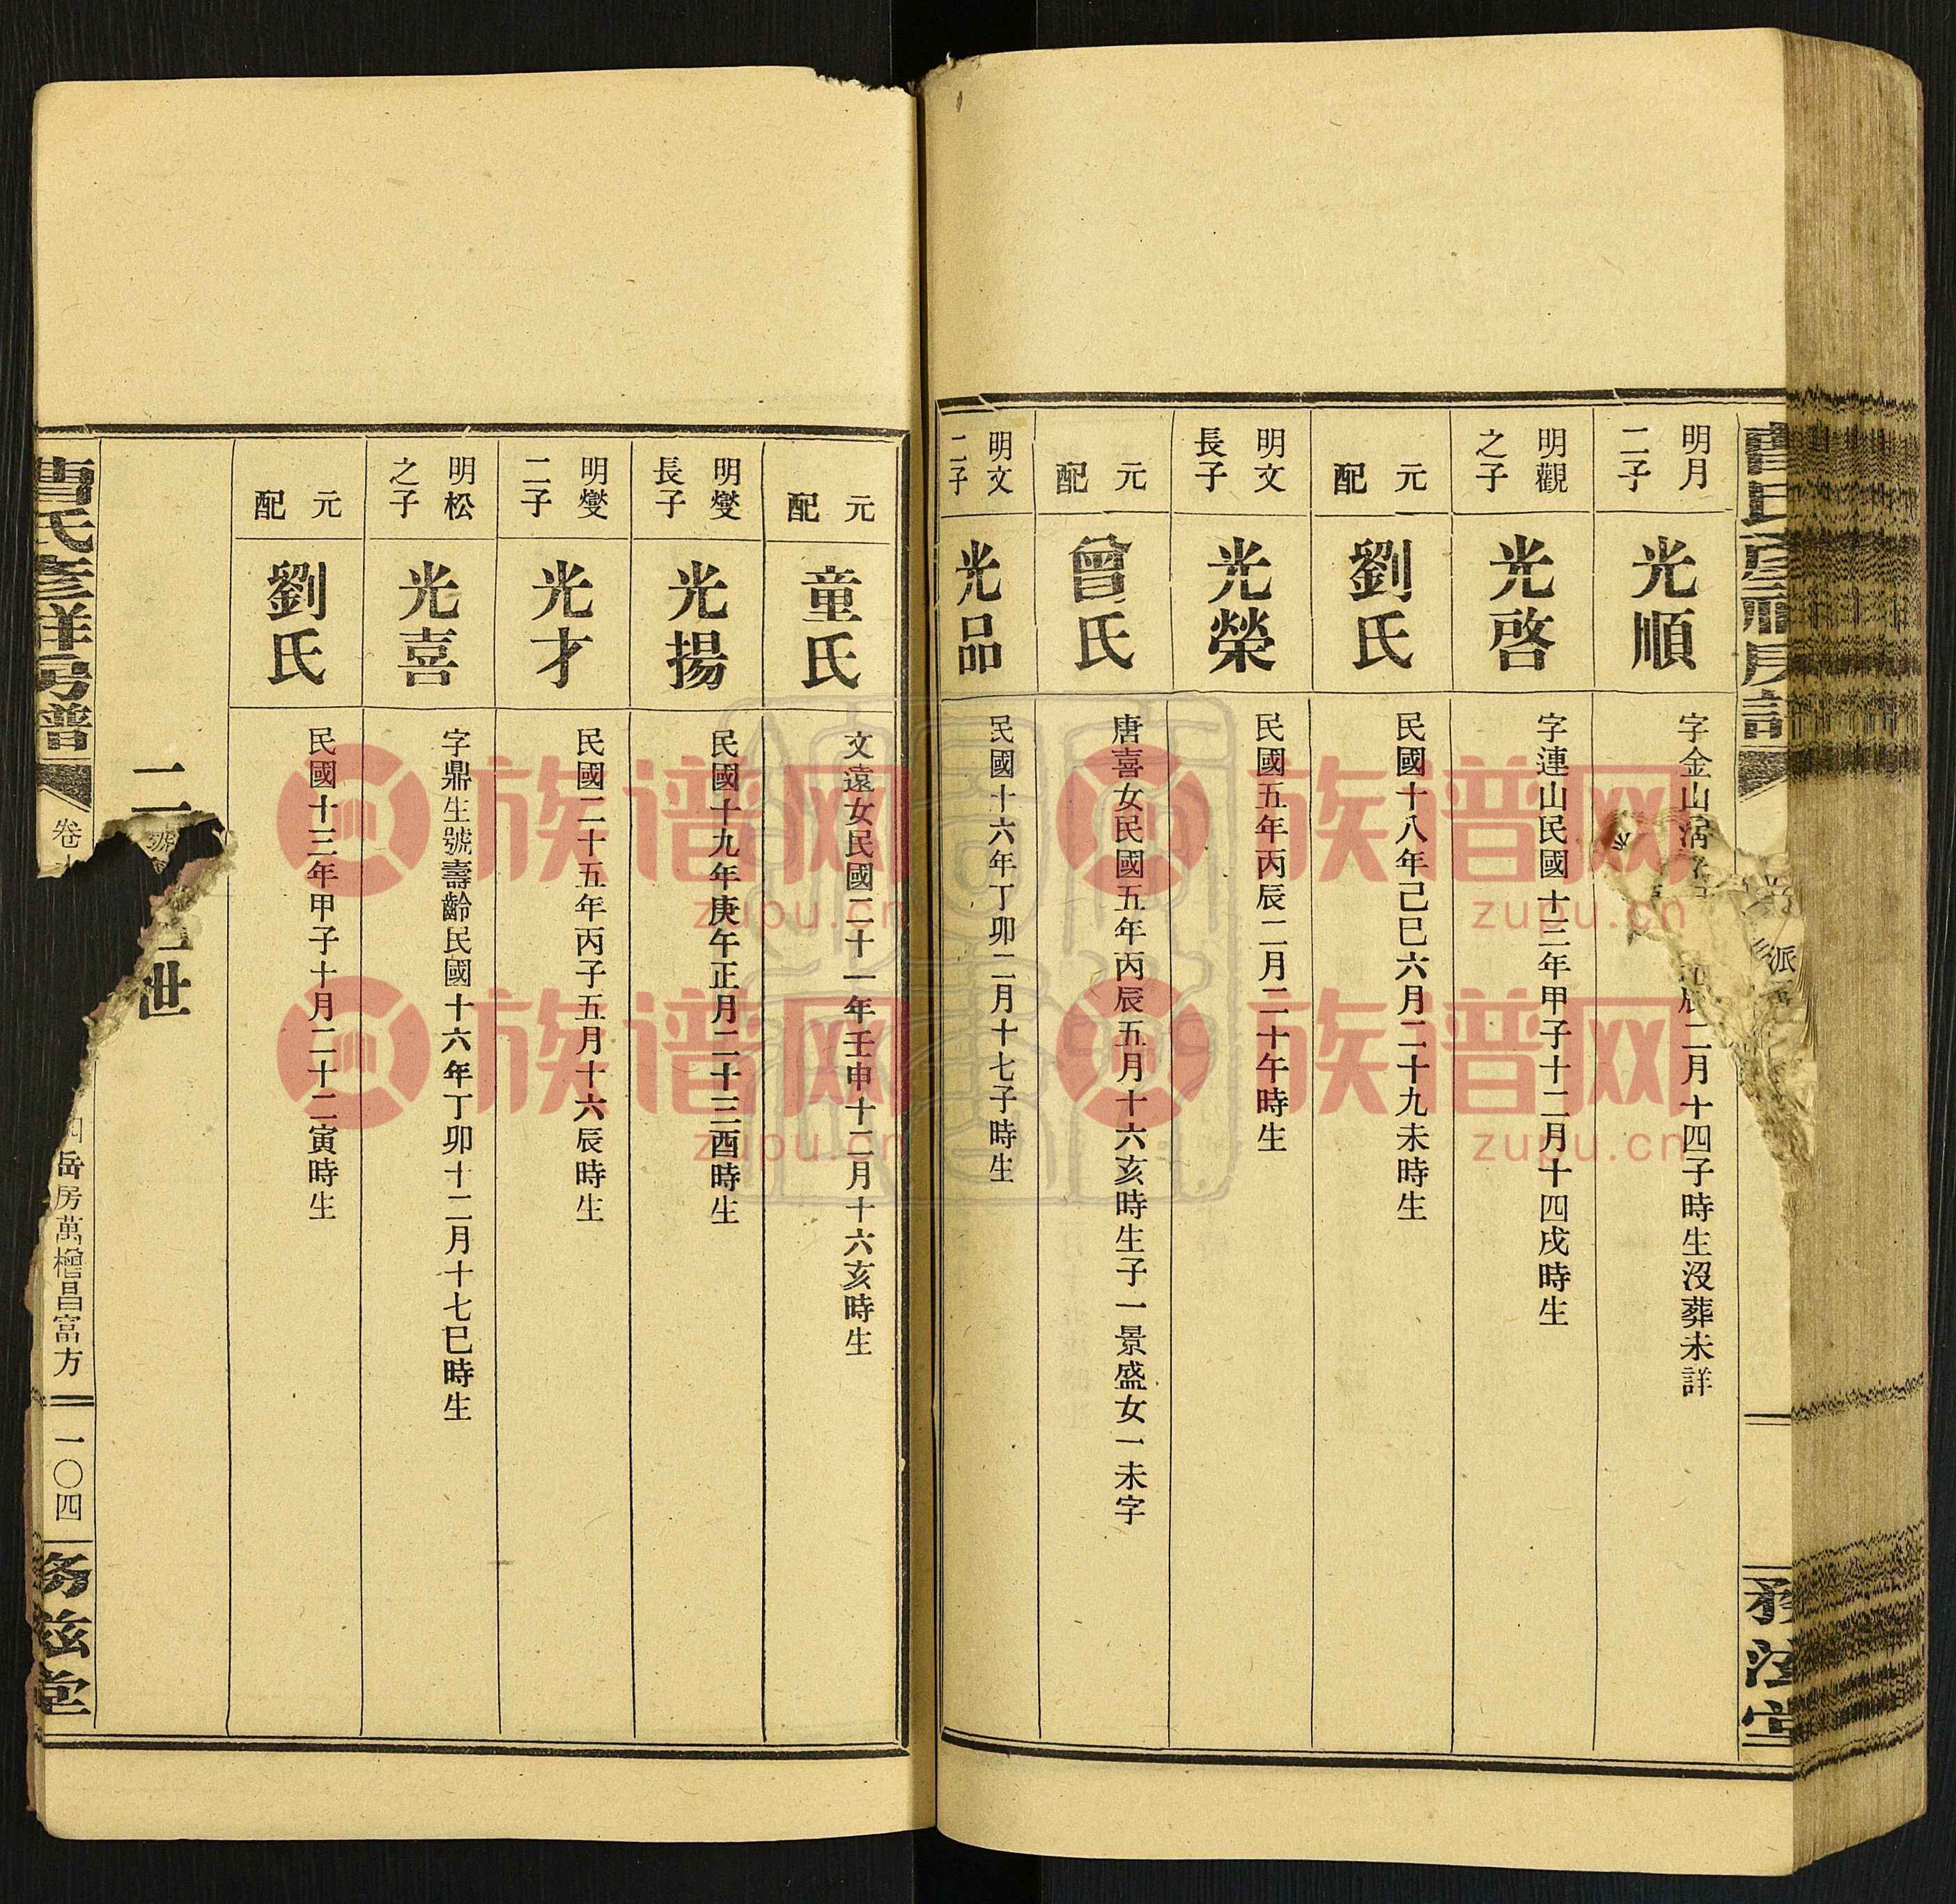 明月
二子
光順
字金山清
辰二月十四子時生沒葬未詳
明觀
之子
光啓
字連山民國十三年甲子十二月十四戌時生
元
配
劉氏
民國十八年己巳六月二十九未時生
明文
長子
光榮
民國五年丙辰二月二十午時生
元
配
曾氏
唐喜女民國五年丙辰五月十六亥時生子一景盛女一未字
明文
二子
光品
民國十六年丁卯二月十七子時生
元
配
童氏
文遠女民國二十一年壬申十二月十六亥時生
明燮
長子
光揚
民國十九年庚午正月二十三酉時生
明燮
二子
光才
民國二十五年丙子五月十六辰時生
明松
之子
光喜
字鼎生號壽齡民國十六年丁卯十二月十七巳時生
元
配
劉氏
民國十三年甲子十月二十二寅時生
二
世
曹氏彥祥房譜
卷
岳房萬檜昌富方
一〇四
務滋堂
派
族谱网
zupu.cn
族谱网
zupu.cn
族谱网
zupu.cn
族谱网
zupu.cn